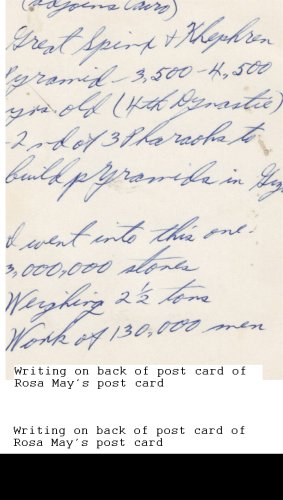 (adjoins Cairo)
Great Spinx & Khephren
Pyramid - 3,500 - 4,500
yrs. old (4th Dynastie)
- 2nd of 3 Pharaohs to
build pyramids in Giz
I went into this one.
3,000,000 stones
Weighing 2½ tons
Work of 130,000 men
Writing on back of post card of
Rosa May's post card
Writing on back of post card of
Rosa May's post card